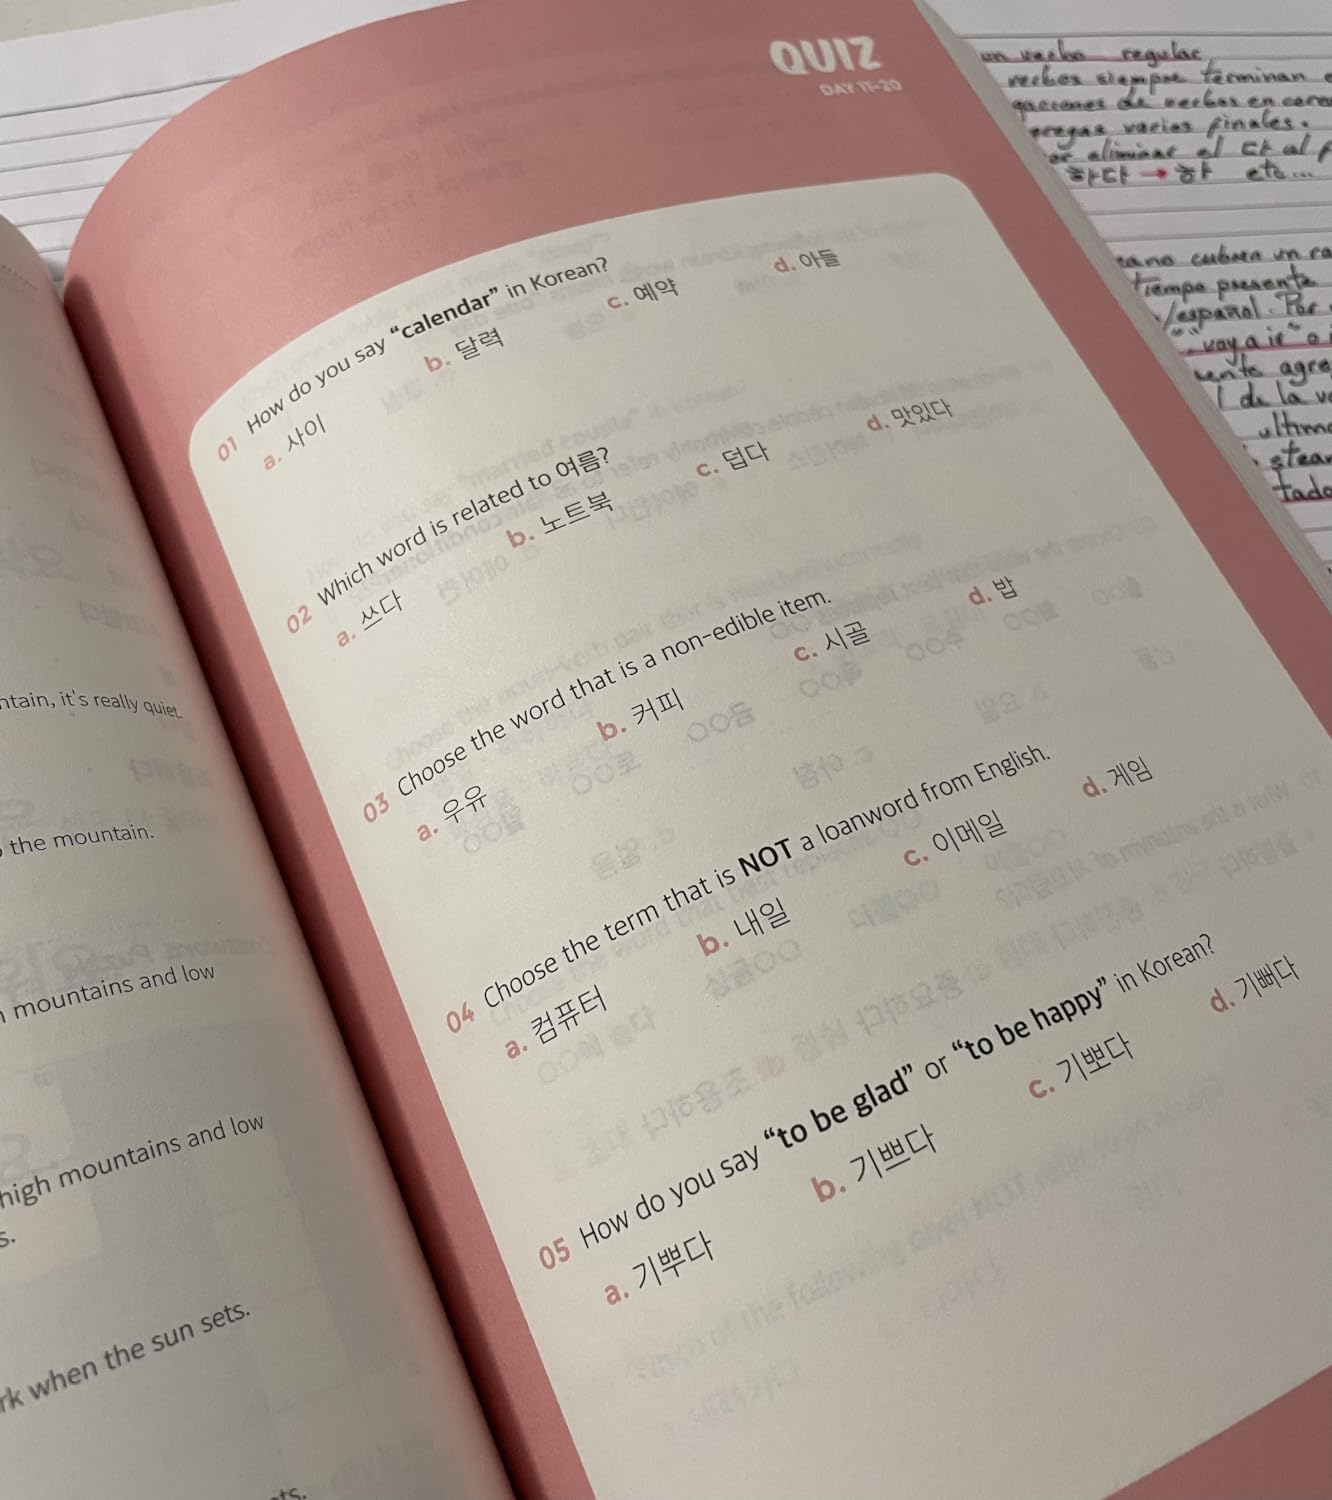 QUIZ
DAY 11-20
01 How do you say “calendar” in Korean?
a. 사이 b. 달력 c. 예약 d. 아들
02 Which word is related to 여름?
a. 쓰다 b. 노트북 c. 덥다 d. 맛있다
03 Choose the word that is a non-edible item.
a. 우유 b. 커피 c. 시골 d. 밥
04 Choose the term that is NOT a loanword from English.
a. 컴퓨터 b. 내일 c. 이메일 d. 게임
05 How do you say “to be glad” or “to be happy” in Korean?
a. 기뿌다 b. 기쁘다 c. 기뽀다 d. 기뻐다
ntain, it's really quiet.
the mountain.
mountains and low
high mountains and low
s.
rk when the sun sets.
ts.
un verbo regular,
verbos siempre terminan
gaciones de verbos en
varias finales.
el 다 al
하다 → 하 etc...
un
tiempo presente
/español. Por
"voy a ir" o
mente
de la